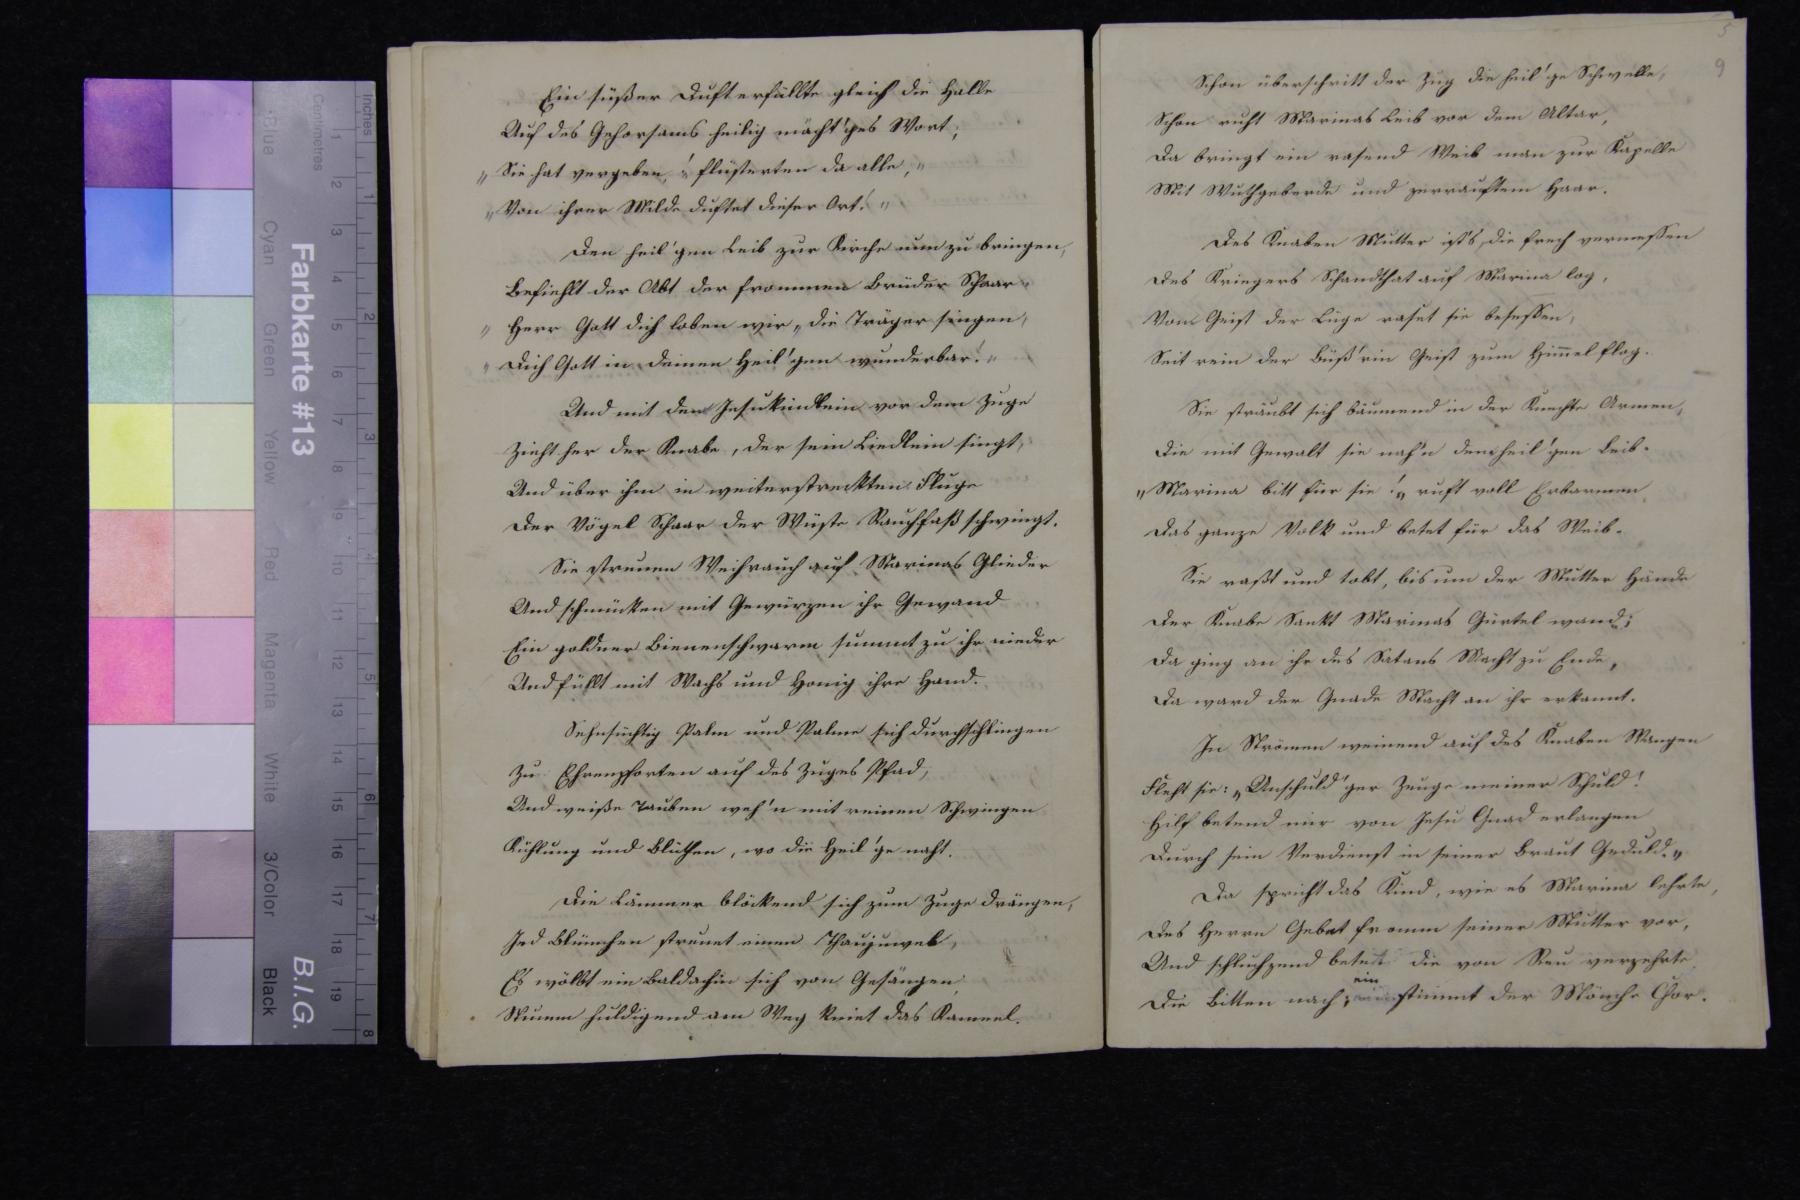 Ein süßer Duft erfüllte gleich die Halle
Auf des Gehorsams heilig mächt'ges Wort;
„Sie hat vergeben!" flüsterten da alle,
„Von ihrer Milde duftet dieser Ort!"
Den heil'gen Leib zur Kirche nun zu bringen,
Befiehlt der Abt der frommen Brüder Schaar.
„Herr Gott dich loben wir" die Träger singen,
„Dich Gott in deinen Heil'gen wunderbar!"
Und mit dem Jesukindlein vor dem Zuge
Zieht her der Knabe, der sein Liedlein singt,
Und über ihm in weiterstreckten Fluge
Der Vögel Schaar der Wüste Rauchfaß schwingt.
Sie streuen Weihrauch auf Marinas Glieder
Und schmücken mit Gewürzen ihr Gewand
Ein goldner Bienenschwarm summt zu ihr nieder
Und füllt mit Wachs und Honig ihre Hand.
Sehnsüchtig Palm und Palme sich durchschlingen
Zu Ehrenpforten auf des Zuges Pfad,
Und weiße Tauben weh'n mit reinen Schwingen
Kühlung und Blüthen, wo die Heil'ge naht.
Die Lämmer blöckend sich zum Zuge drängen,
Jed Blümchen streuet einen Thaujuwel,
Es wölbt ein Baldachin sich von Gesängen,
Stumm huldigend am Weg kniet das Kameel.
5
9
Schon überschritt der Zug die heil'ge Schwelle,
Schon ruht Marinas Leib vor dem Altar,
Da bringt ein rasend Weib man zur Kapelle
Mit Wuthgeberde und zerrauftem Haar.
Des Knaben Mutter ist's, die frech vermessen
Des Kriegers Schandthat auf Marina log,
Vom Geist der Lüge raset sie besessen,
Seit rein der Büß'rin Geist zum Himmel flog.
Sie sträubt sich bäumend in der Knechte Armen,
Die mit Gewalt sie nah'n dem heil'gen Leib.
„Marina bitt für sie!" ruft voll Erbarmen
Das ganze Volk und betet für das Weib.
Sie rast und tobt, bis um der Mutter Hände
Der Knabe Sankt Marinas Gürtel wand;
Da ging an ihr des Satans Macht zu Ende,
Da ward der Gnade Macht an ihr erkannt.
In Strömen weinend auf des Knaben Wangen
Fleht sie: „Unschuld'ger Zeuge meiner Schuld!
Hilf betend mir von Jesu Gnad erlangen
Durch sein Verdienst in seiner Braut Geduld."
Da spricht das Kind, wie es Marina lehrte,
Des Herrn Gebet fromm seiner Mutter vor,
Und schluchzend betet die von Reu verzehrte
Die Bitten nach; ein stimmt der Mönche Chor.
Farbkarte #13
B.I.G.
Inches
Centimetres
Blue
Cyan
Green
Yellow
Red
Magenta
White
3/Color
Black
1 2 3 4 5 6 7 8 9 10 11 12 13 14 15 16 17 18 19
1 2 3 4 5 6 7 8